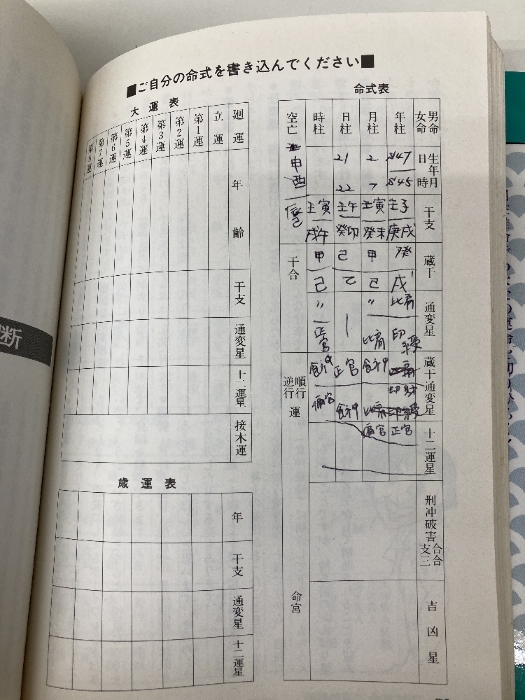 ■ご自分の命式を書き込んでください■
命式表
男命
女命
生年月日時
年柱
月柱
日柱
時柱
空亡
S47
2
21
申
S45
7
22
酉
干支
壬子
壬寅
壬午
壬寅
庚戌
癸未
癸卯
戊午
蔵干
癸
甲
己
甲
干合
戊
己
乙
己
通変星
比肩
〃
〃
印綬
比肩
正官
蔵干通変星
食神
正官
食神
比肩
食神
偏官
十二運星
正官
偏官
順行
逆行
運
刑冲破害
支合
三合
吉凶星
命宮
大運表
廻運
立運
第1運
第2運
第3運
第4運
第5運
第6運
第7運
第8運
年齢
干支
通変星
十二運星
接木運
歳運表
年
干支
通変星
十二運星
断